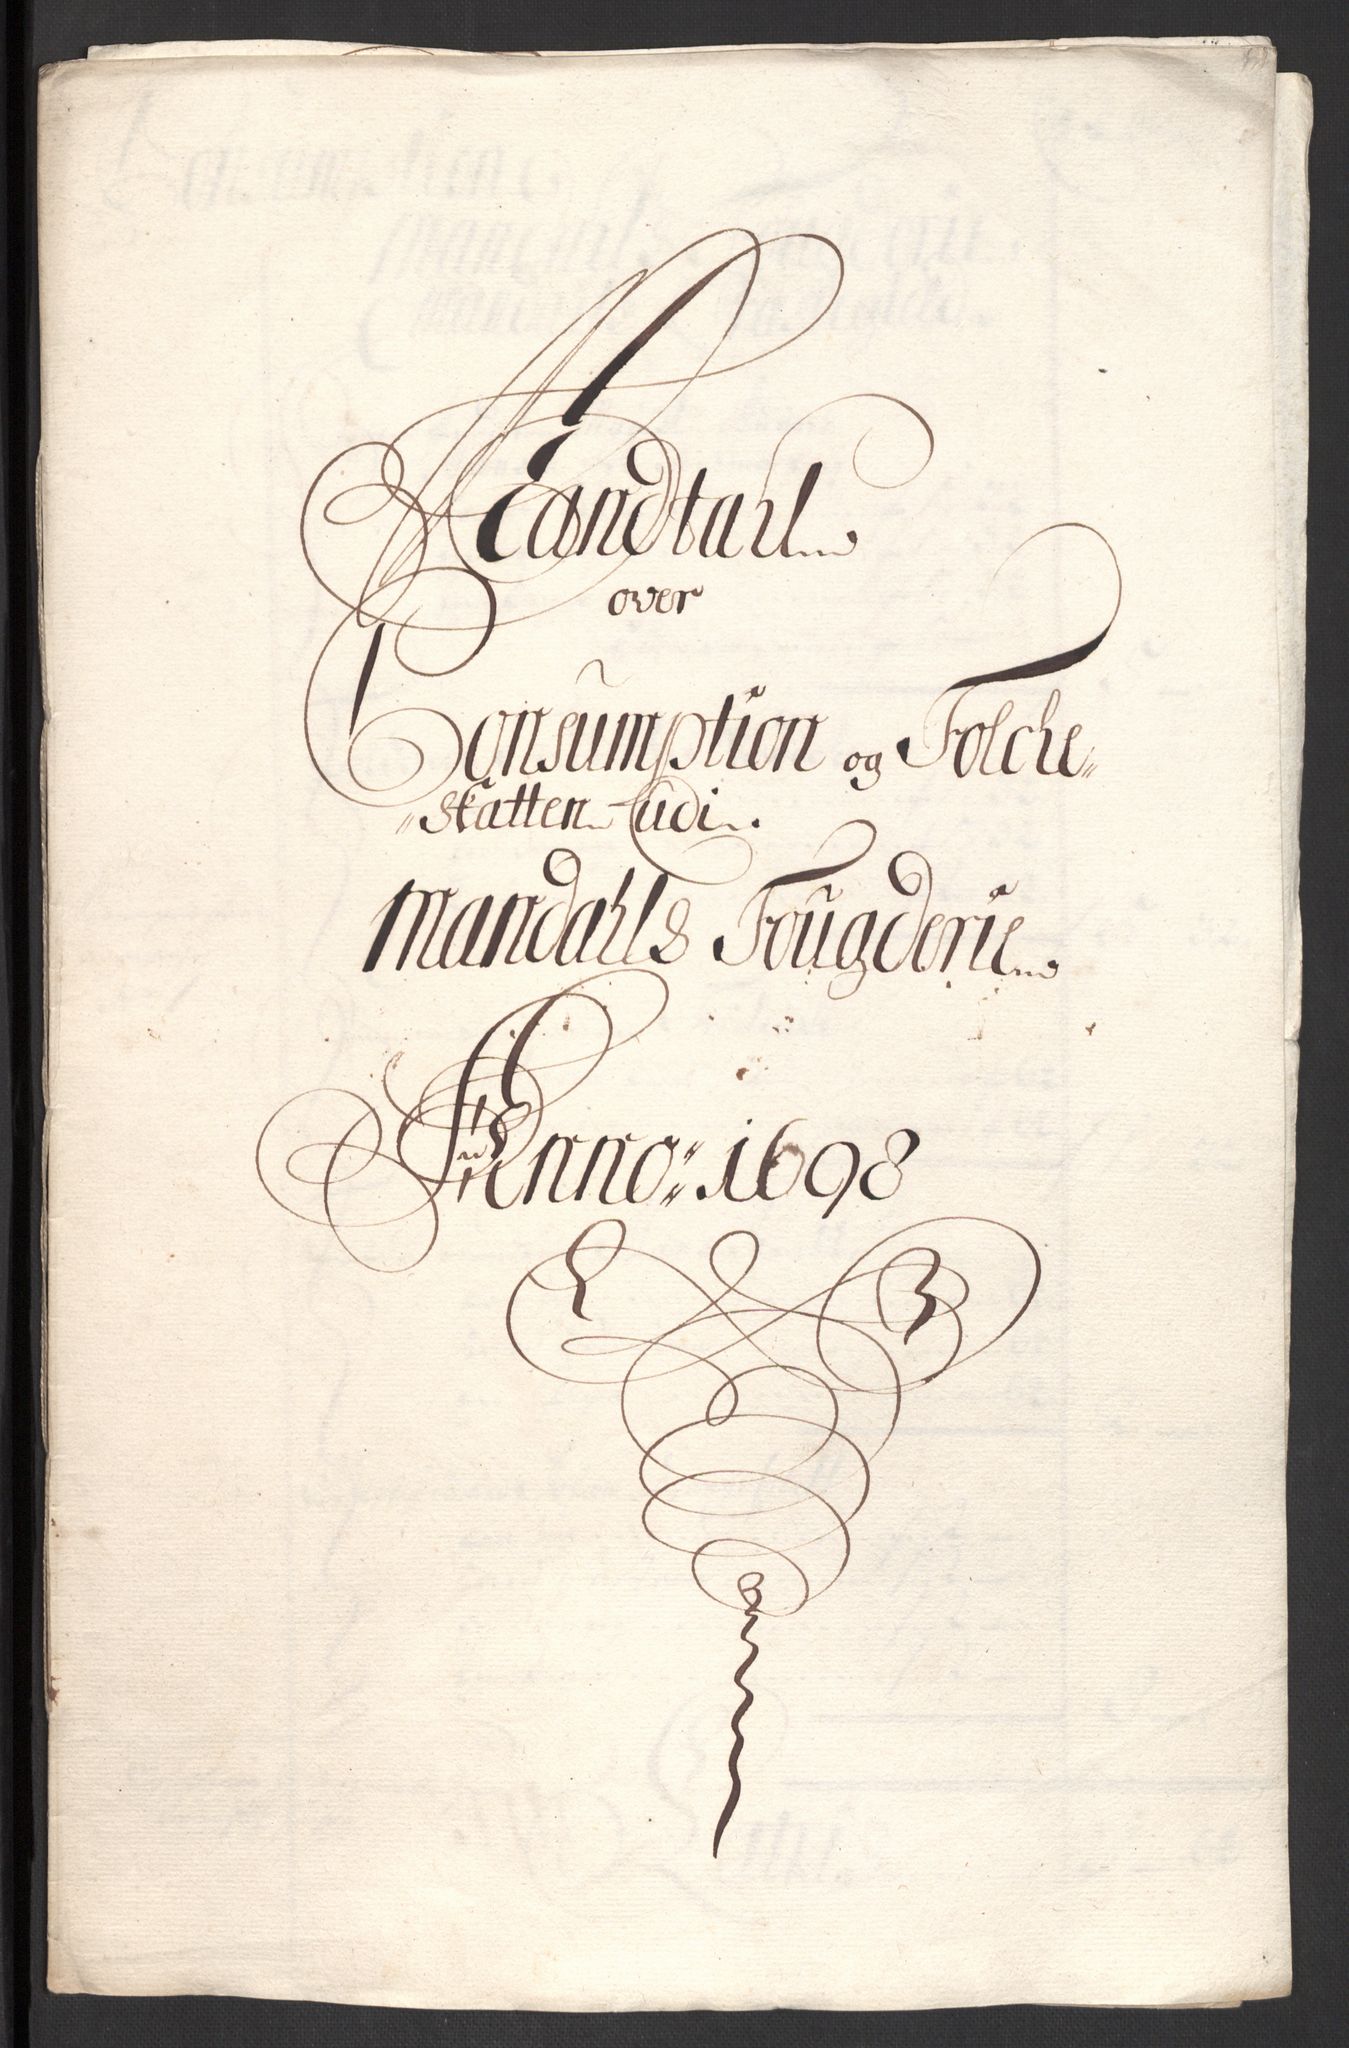 Mandtahl
over
Consumption og Folche-
skatten udi
Mandahls Fougderie
Anno: 1698